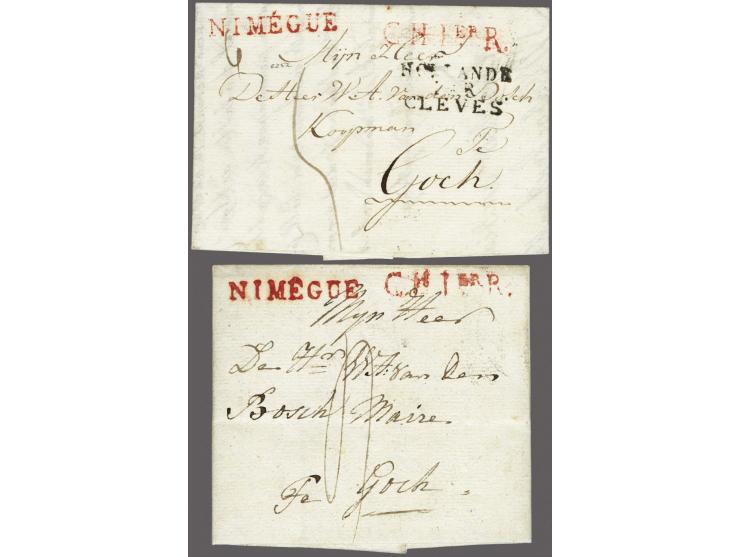 NIMÉGUE C.H. 1ER R.
Mijn Heer
HOLLANDE
De Heer W. A. van den Bosch
R
CLEVES
Koopman
Te
Goch.
NIMÉGUE C.H. 1ER R.
Mijn Heer
De Hr. W. A. van den
Bosch Maire
Te Goch.